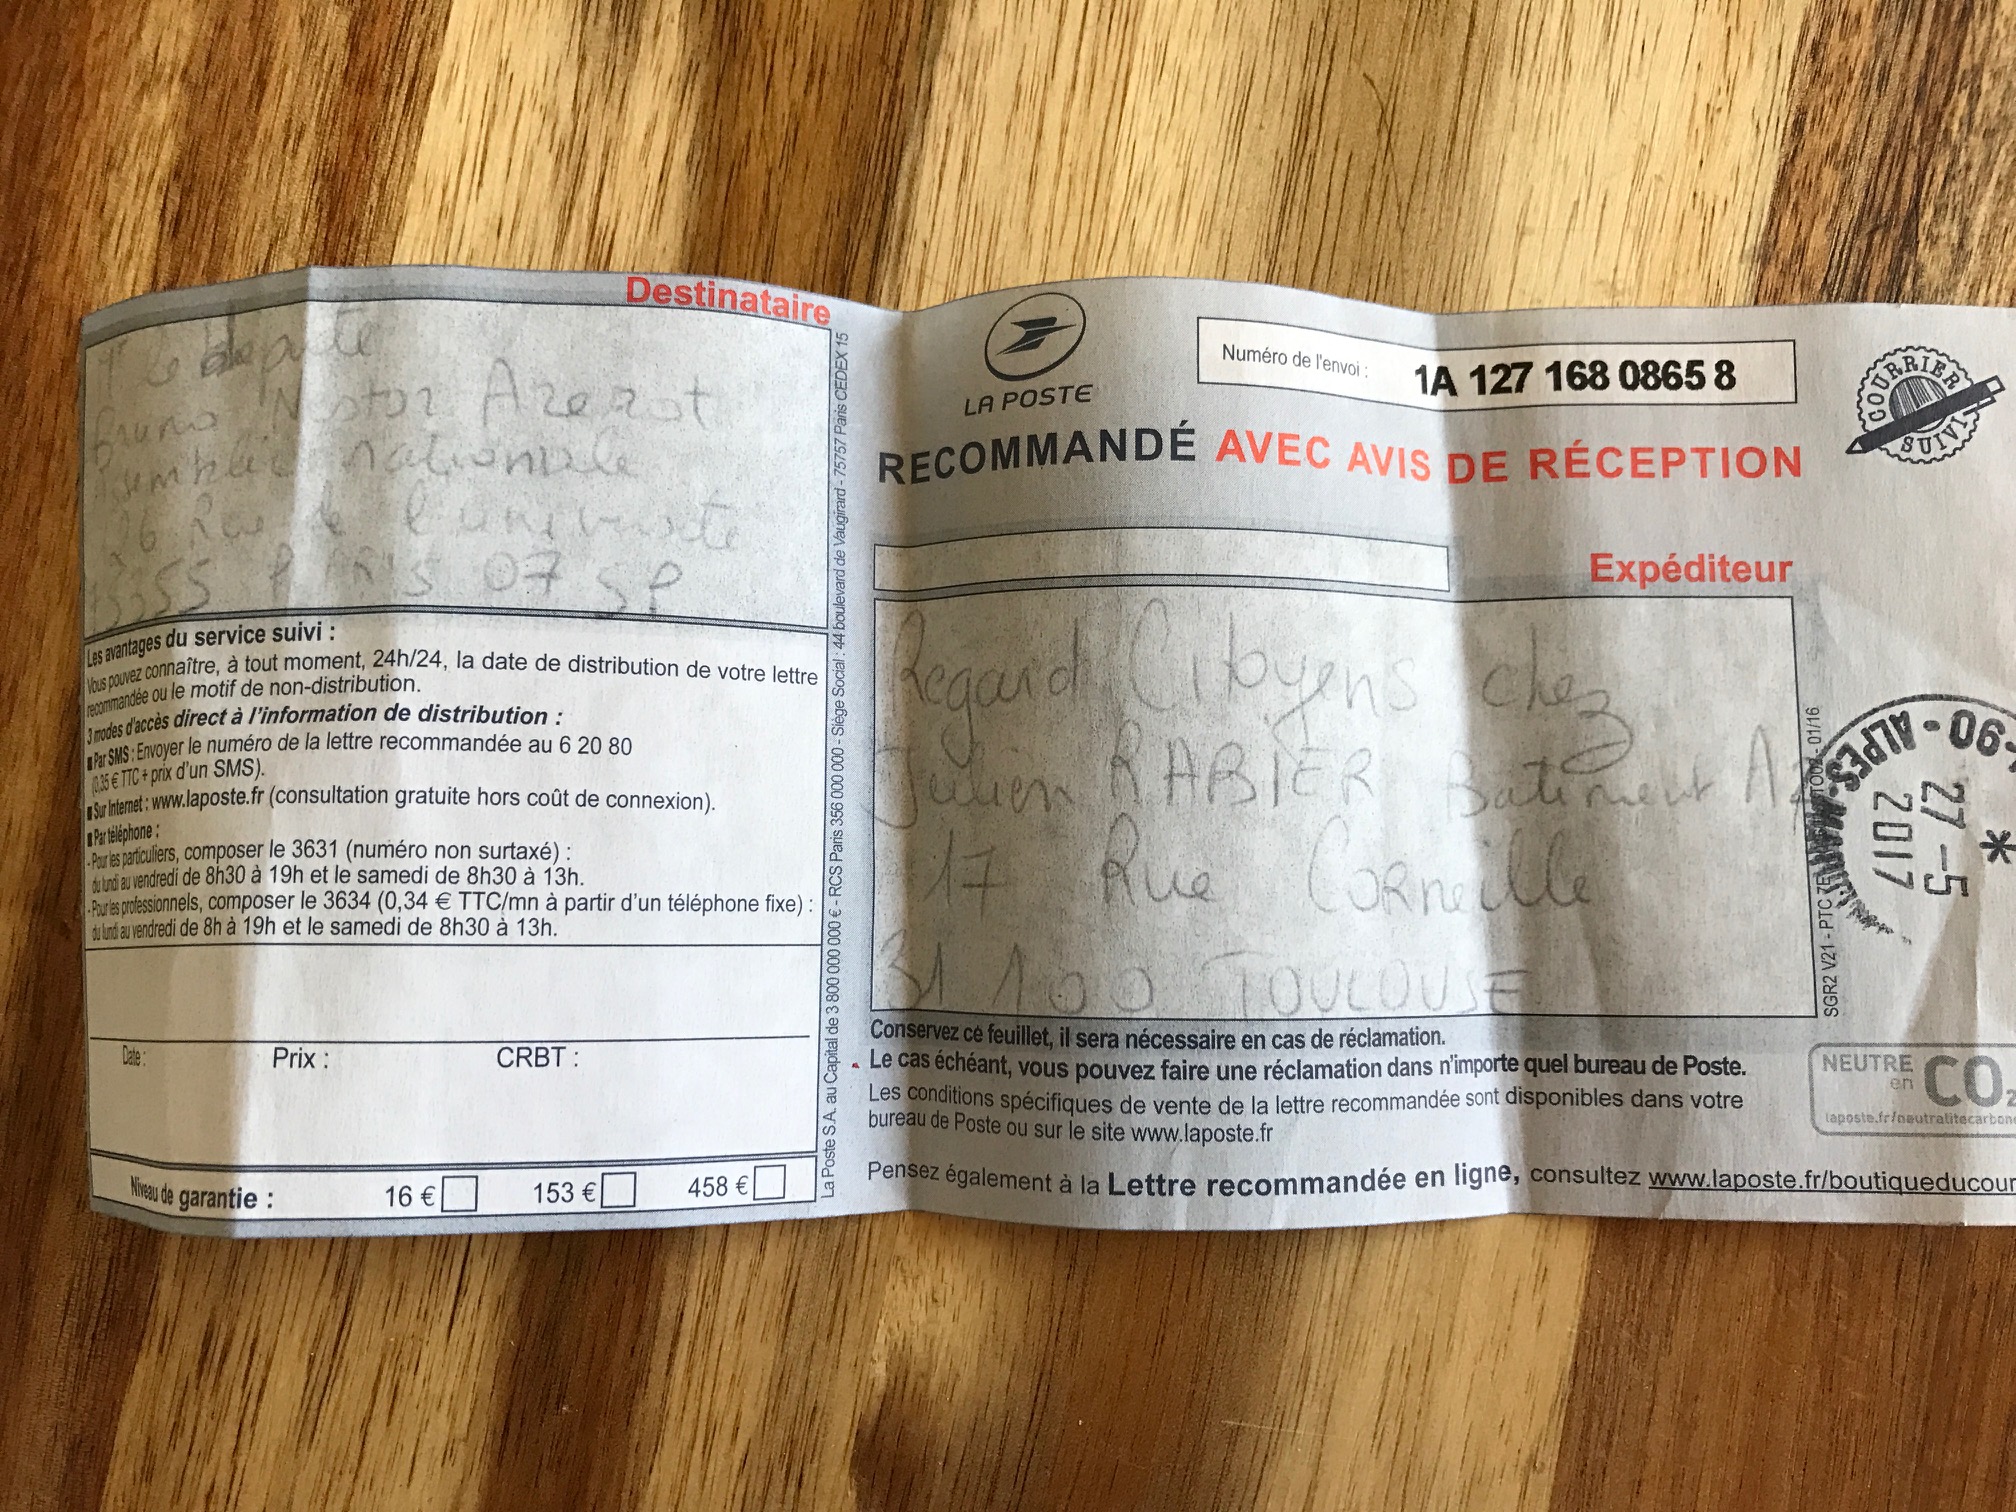 Destinataire
le député
Bruno Nestor Azerot
Assemblée Nationale
Rue de l'université
PARIS 07 SP
Les avantages du service suivi :
Vous pouvez connaître, à tout moment, 24h/24, la date de distribution de votre lettre
recommandée ou le motif de non-distribution.
3 modes d'accès direct à l'information de distribution :
■ Par SMS : Envoyer le numéro de la lettre recommandée au 6 20 80
(0,35 € TTC + prix d'un SMS).
■ Sur Internet : www.laposte.fr (consultation gratuite hors coût de connexion).
■ Par téléphone :
- Pour les particuliers, composer le 3631 (numéro non surtaxé) :
du lundi au vendredi de 8h30 à 19h et le samedi de 8h30 à 13h.
- Pour les professionnels, composer le 3634 (0,34 € TTC/mn à partir d'un téléphone fixe) :
du lundi au vendredi de 8h à 19h et le samedi de 8h30 à 13h.
Date : Prix : CRBT :
Niveau de garantie : 16 € 153 € 458 €
La Poste S.A. au Capital de 3 800 000 000 € - RCS Paris 356 000 000 - Siège Social : 44 boulevard de Vaugirard - 75757 Paris CEDEX 15
LA POSTE
Numéro de l'envoi : 1A 127 168 0865 8
COURRIER SUIVI
RECOMMANDÉ AVEC AVIS DE RÉCEPTION
Expéditeur
Regard Citoyens chez
Julien RABIER Batiment A2
17 Rue Corneille
31 100 TOULOUSE
SGR2 V21 - PTC 01/16
06 - ALPES-MARIT
27 -5
2017
*
Conservez ce feuillet, il sera nécessaire en cas de réclamation.
Le cas échéant, vous pouvez faire une réclamation dans n'importe quel bureau de Poste.
Les conditions spécifiques de vente de la lettre recommandée sont disponibles dans votre
bureau de Poste ou sur le site www.laposte.fr
NEUTRE
en CO2
laposte.fr/neutralitecarbone
Pensez également à la Lettre recommandée en ligne, consultez www.laposte.fr/boutiqueducour